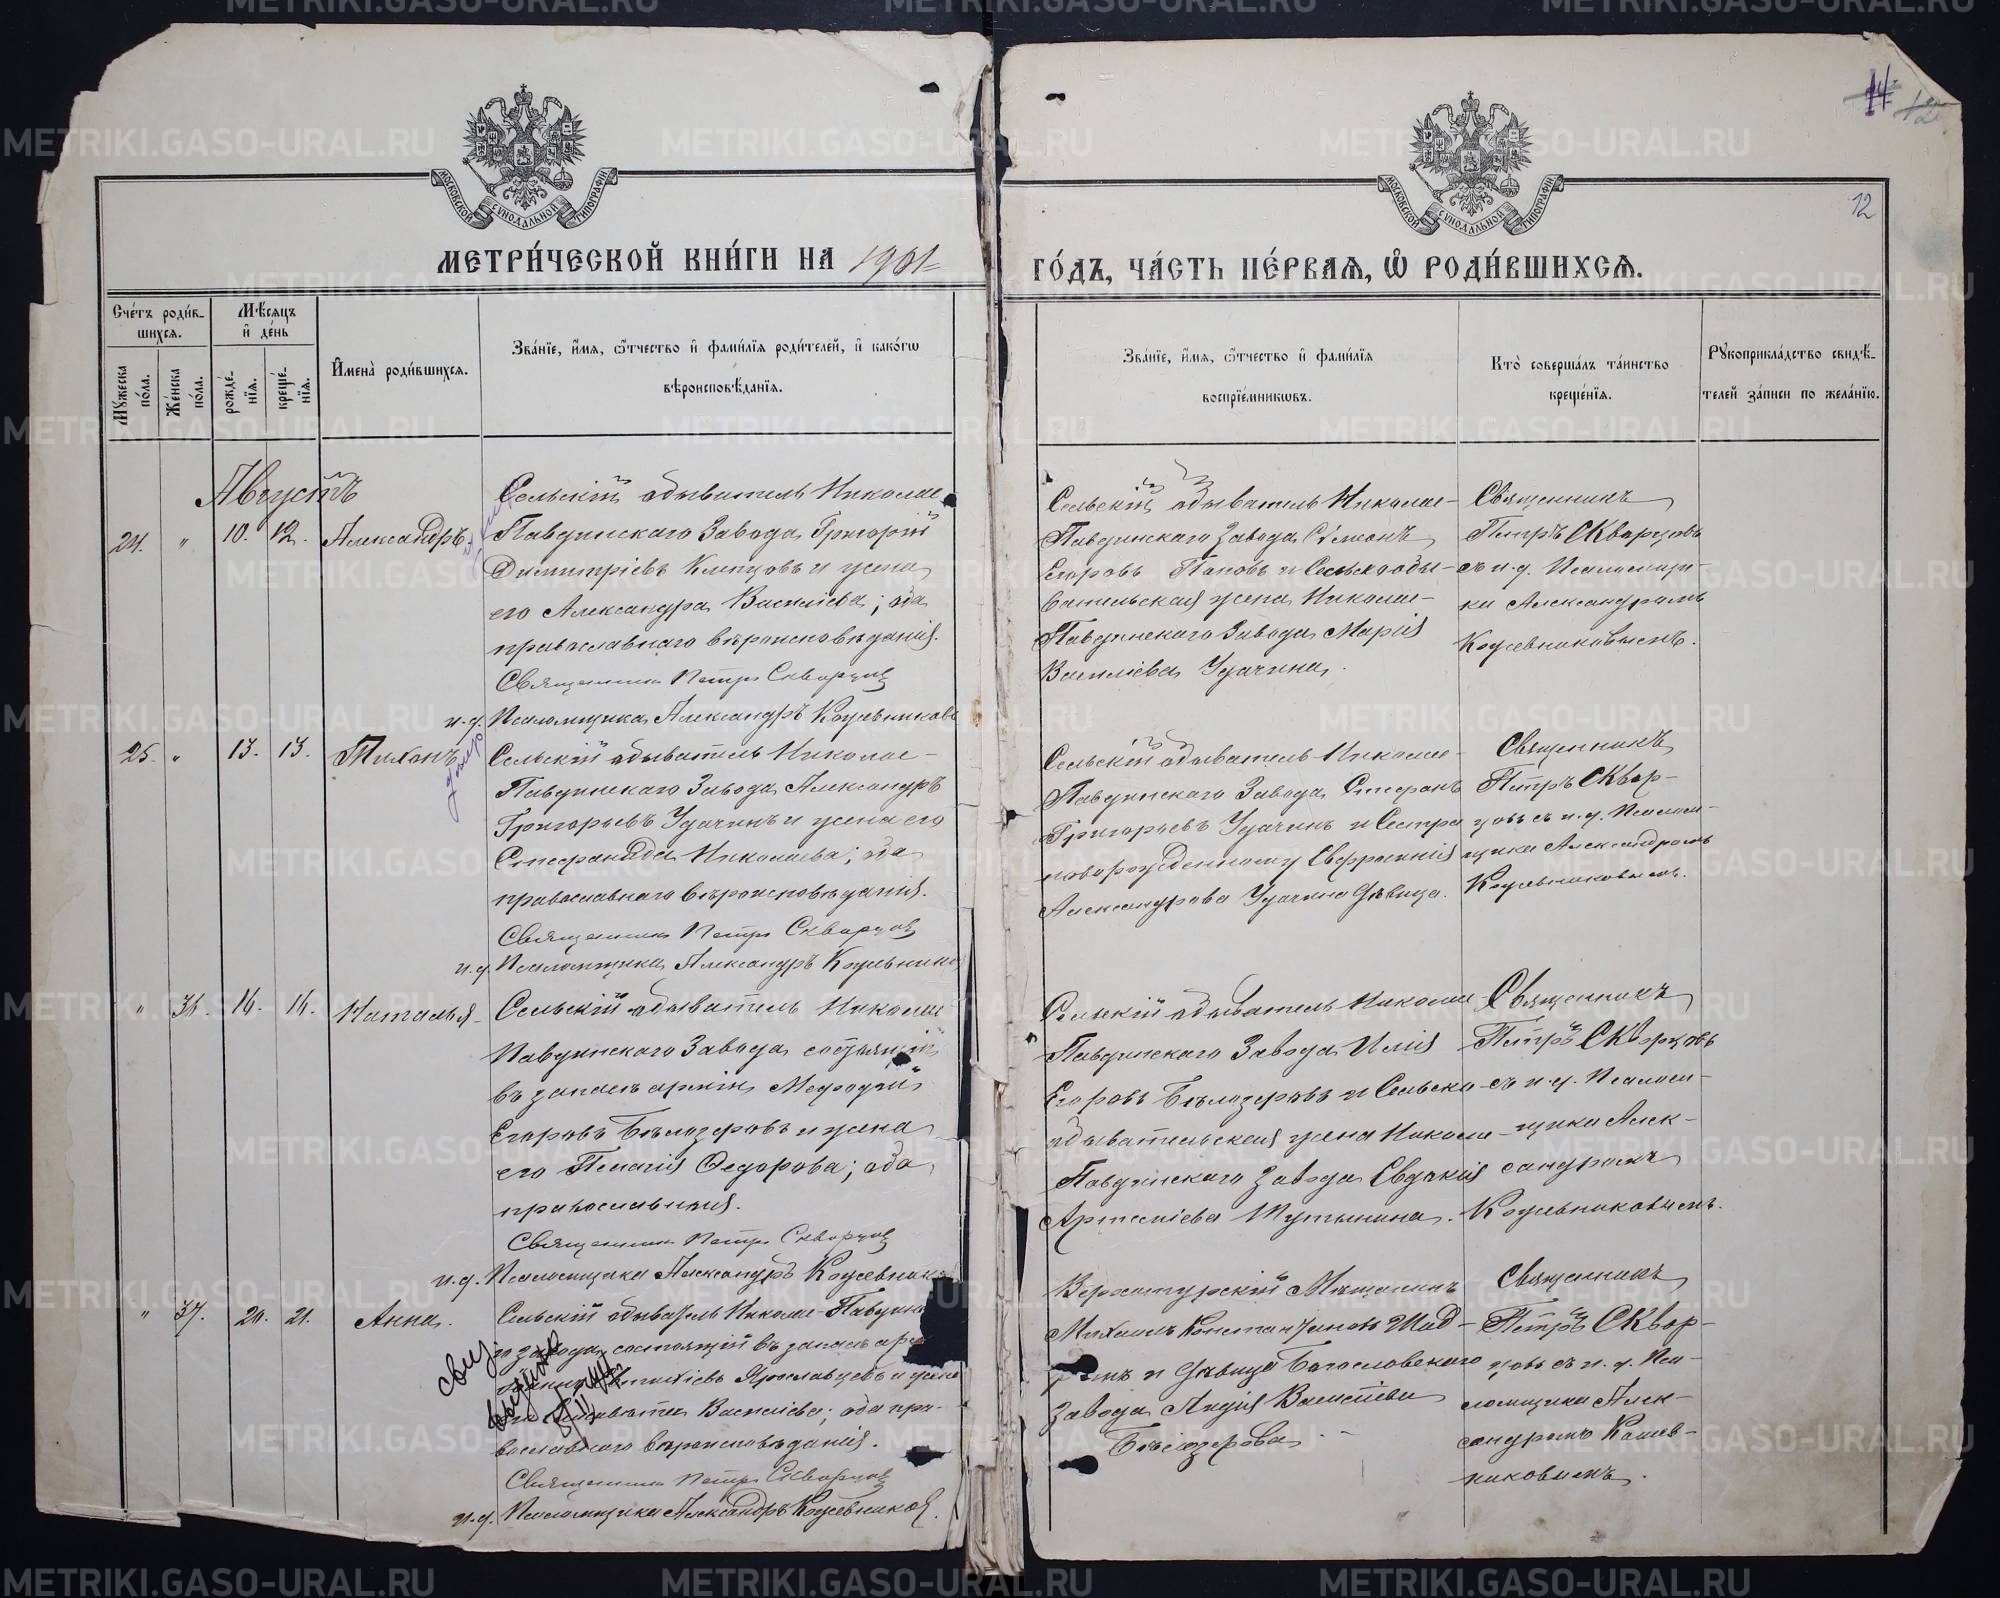 14 12
12
МОСКОВСКОЙ СѴНОДАЛЬНОЙ ТИПОГРАФІИ
МОСКОВСКОЙ СѴНОДАЛЬНОЙ ТИПОГРАФІИ
МЕТРИ́ЧЕСКОЙ КНИ́ГИ НА 1901
ГО́ДЪ, ЧА́СТЬ ПЕ́РВАѦ, Ѡ РОДИ́ВШИХСѦ.
Сче́тъ роди́в-
шихсѧ.
Мѣ́сѧцъ
и҆ де́нь
Мꙋ́жеска по́ла.
Же́нска по́ла.
рожде́-нїѧ.
креще́-нїѧ.
И҆мена̀ роди́вшихсѧ.
Зва́нїе, и҆́мѧ, ѻ҆́тчество и҆ фами́лїѧ роди́телей, и҆ како́гѡ
вѣроисповѣ́данїѧ.
Зва́нїе, и҆́мѧ, ѻ҆́тчество и҆ фами́лїѧ
воспрїе́мникѡвъ.
Кто̀ соверша́лъ та́инство
креще́нїѧ.
Рꙋкоприкла́дство свидѣ́-
телей за́писи по жела́нїю.
Августъ
24. " 10. 12. Александръ
Сельскій обыватель Николае-
Павдинскаго Завода Григорій
Димитріевъ Клепцовъ и жена
его Александра Василіева; оба
православнаго вѣроисповѣданія.
Священникъ Петръ Скворцовъ
и.д. Псаломщика Александръ Кожевниковъ
Сельскій обыватель Николае-
Павдинскаго Завода Сѵмеонъ
Егоровъ Поповъ и Сельскообы-
вательская жена Николае-
Павдинскаго Завода Марія
Василіева Удачина.
Священникъ
Петръ Скворцовъ
съ и.д. Псаломщи-
ка Александромъ
Кожевниковымъ.
25. " 13. 13. Тихонъ
Сельскій обыватель Николае-
Павдинскаго Завода Александръ
Григорьевъ Удачинъ и жена его
Стефанида Николаева; оба
православнаго вѣроисповѣданія.
Священникъ Петръ Скворцовъ
и.д. Псаломщика Александръ Кожевников
Сельскій обыватель Николае-
Павдинскаго Завода Стефанъ
Григорьевъ Удачинъ и Сестра
новорожденному Евфросинія
Александрова Удачина дѣвица.
Священникъ
Петръ Сквор-
цовъ съ и.д. Псалом-
щика Александромъ
Кожевниковымъ.
" 36. 16. 16. Наталья
Сельскій обыватель Николае
Павдинскаго Завода состоящій
въ запасѣ арміи Меѳодій
Егоровъ Бѣлозеровъ и жена
его Пелагія Ѳедорова; оба
православныя.
Священникъ Петръ Скворцовъ
и.д. Псаломщика Александръ Кожевник
Сельскій обыватель Николае-
Павдинскаго Завода Илія
Егоровъ Бѣлозеровъ и Сельско-
обывательская жена Николае-
Павдинскаго Завода Евдокія
Артеміева Шутынина.
Священникъ
Петръ Скворцовъ
съ и.д. Псалом-
щика Алек-
сандромъ
Кожевниковымъ.
" 37. 20. 21. Анна.
Сельскій обыватель Николае-Павдин
завода, состоящій въ запасѣ ар
Ярославцевъ и жена
Василіева; оба пра-
вославнаго вѣроисповѣданія.
Священникъ Петръ Скворцовъ
и.д. Псаломщика Александръ Кожевников.
Верхотурскій Мѣщанинъ
Михаилъ Константиновъ Шад-
ринъ и дѣвица Богословскаго
завода Лидія Василіева
Бѣлозерова.
Священникъ
Петръ Сквор-
цовъ съ и.д. Пса-
ломщика Алек-
сандромъ Кожев-
никовымъ.
METRIKI.GASO-URAL.RU